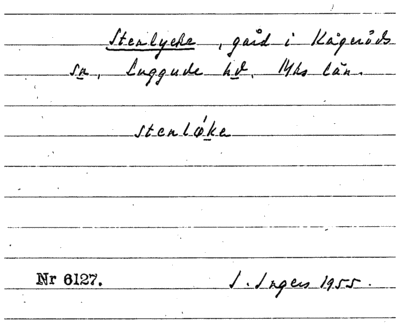 Stenlycke, gård i Kågeröds
sn, Luggude hd. Mhs län.
stenlø̀ke
Nr 6127.
I. Ingers 1955.